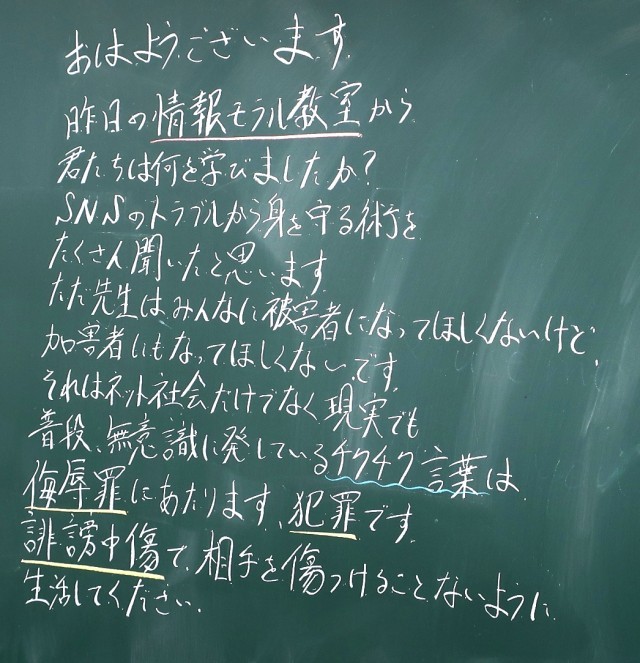 おはようございます
昨日の情報モラル教室から
君たちは何を学びましたか?
SNSのトラブルから身を守る術を
たくさん聞いたと思います
ただ先生はみんなに被害者になってほしくないけど、
加害者にもなってほしくないです。
それはネット社会だけでなく現実でも
普段、無意識に発しているチクチク言葉は
侮辱罪にあたります、犯罪です。
誹謗中傷で、相手を傷つけることないように
生活してください。